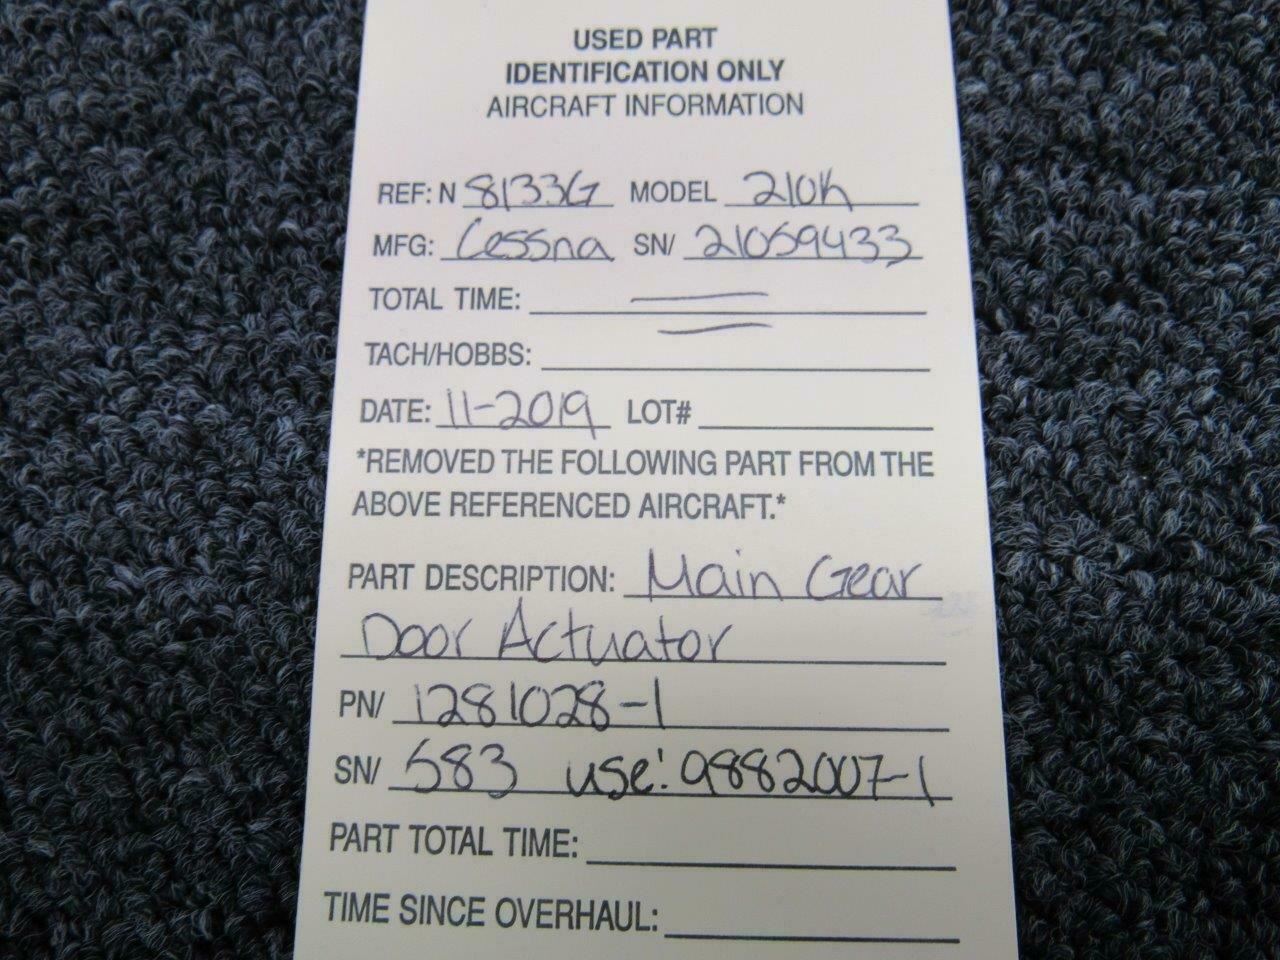 USED PART
IDENTIFICATION ONLY
AIRCRAFT INFORMATION
REF: N 8133G MODEL 210K
MFG: Cessna SN/ 21059433
TOTAL TIME:
TACH/HOBBS:
DATE: 11-2019 LOT#
*REMOVED THE FOLLOWING PART FROM THE
ABOVE REFERENCED AIRCRAFT.*
PART DESCRIPTION: Main Gear
Door Actuator
PN/ 1281028-1
SN/ 583 use: 9882007-1
PART TOTAL TIME:
TIME SINCE OVERHAUL: